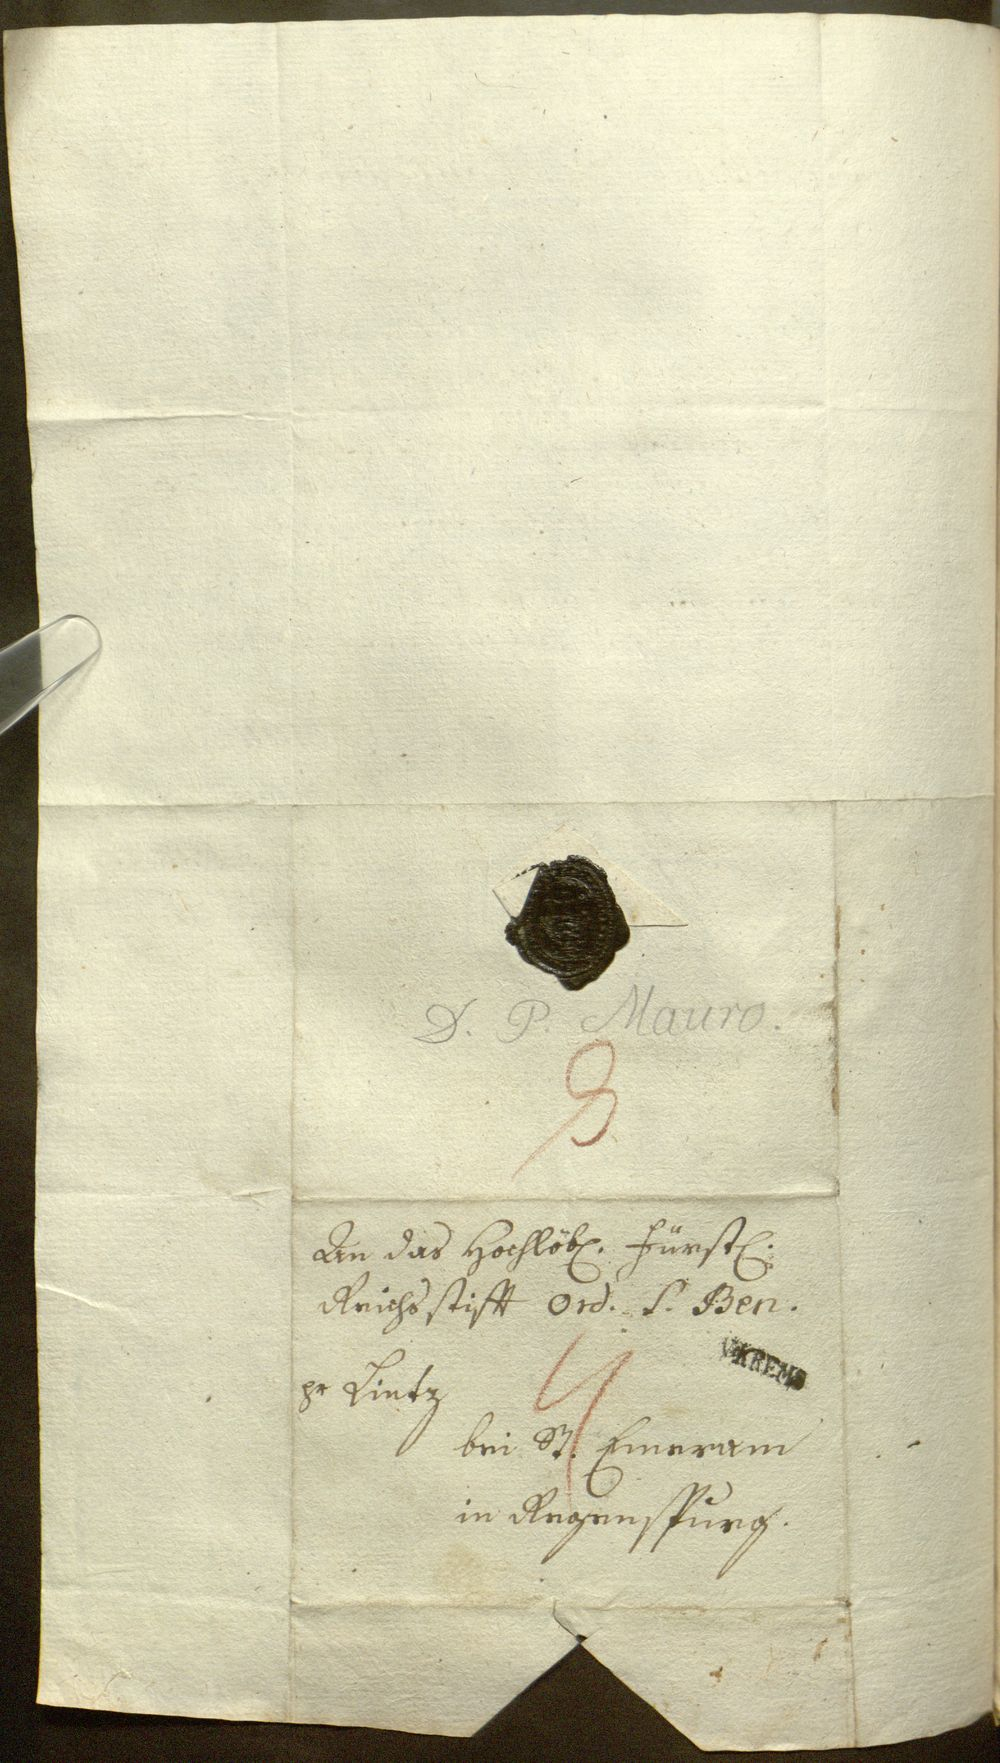 D. P. Mauro.
8
An das Hochlöbl. Fürstl.
Reichsstift Ord. S. Ben.
V. KREMS
pr Lintz
4
bei St. Emeram
in Regenspurg.